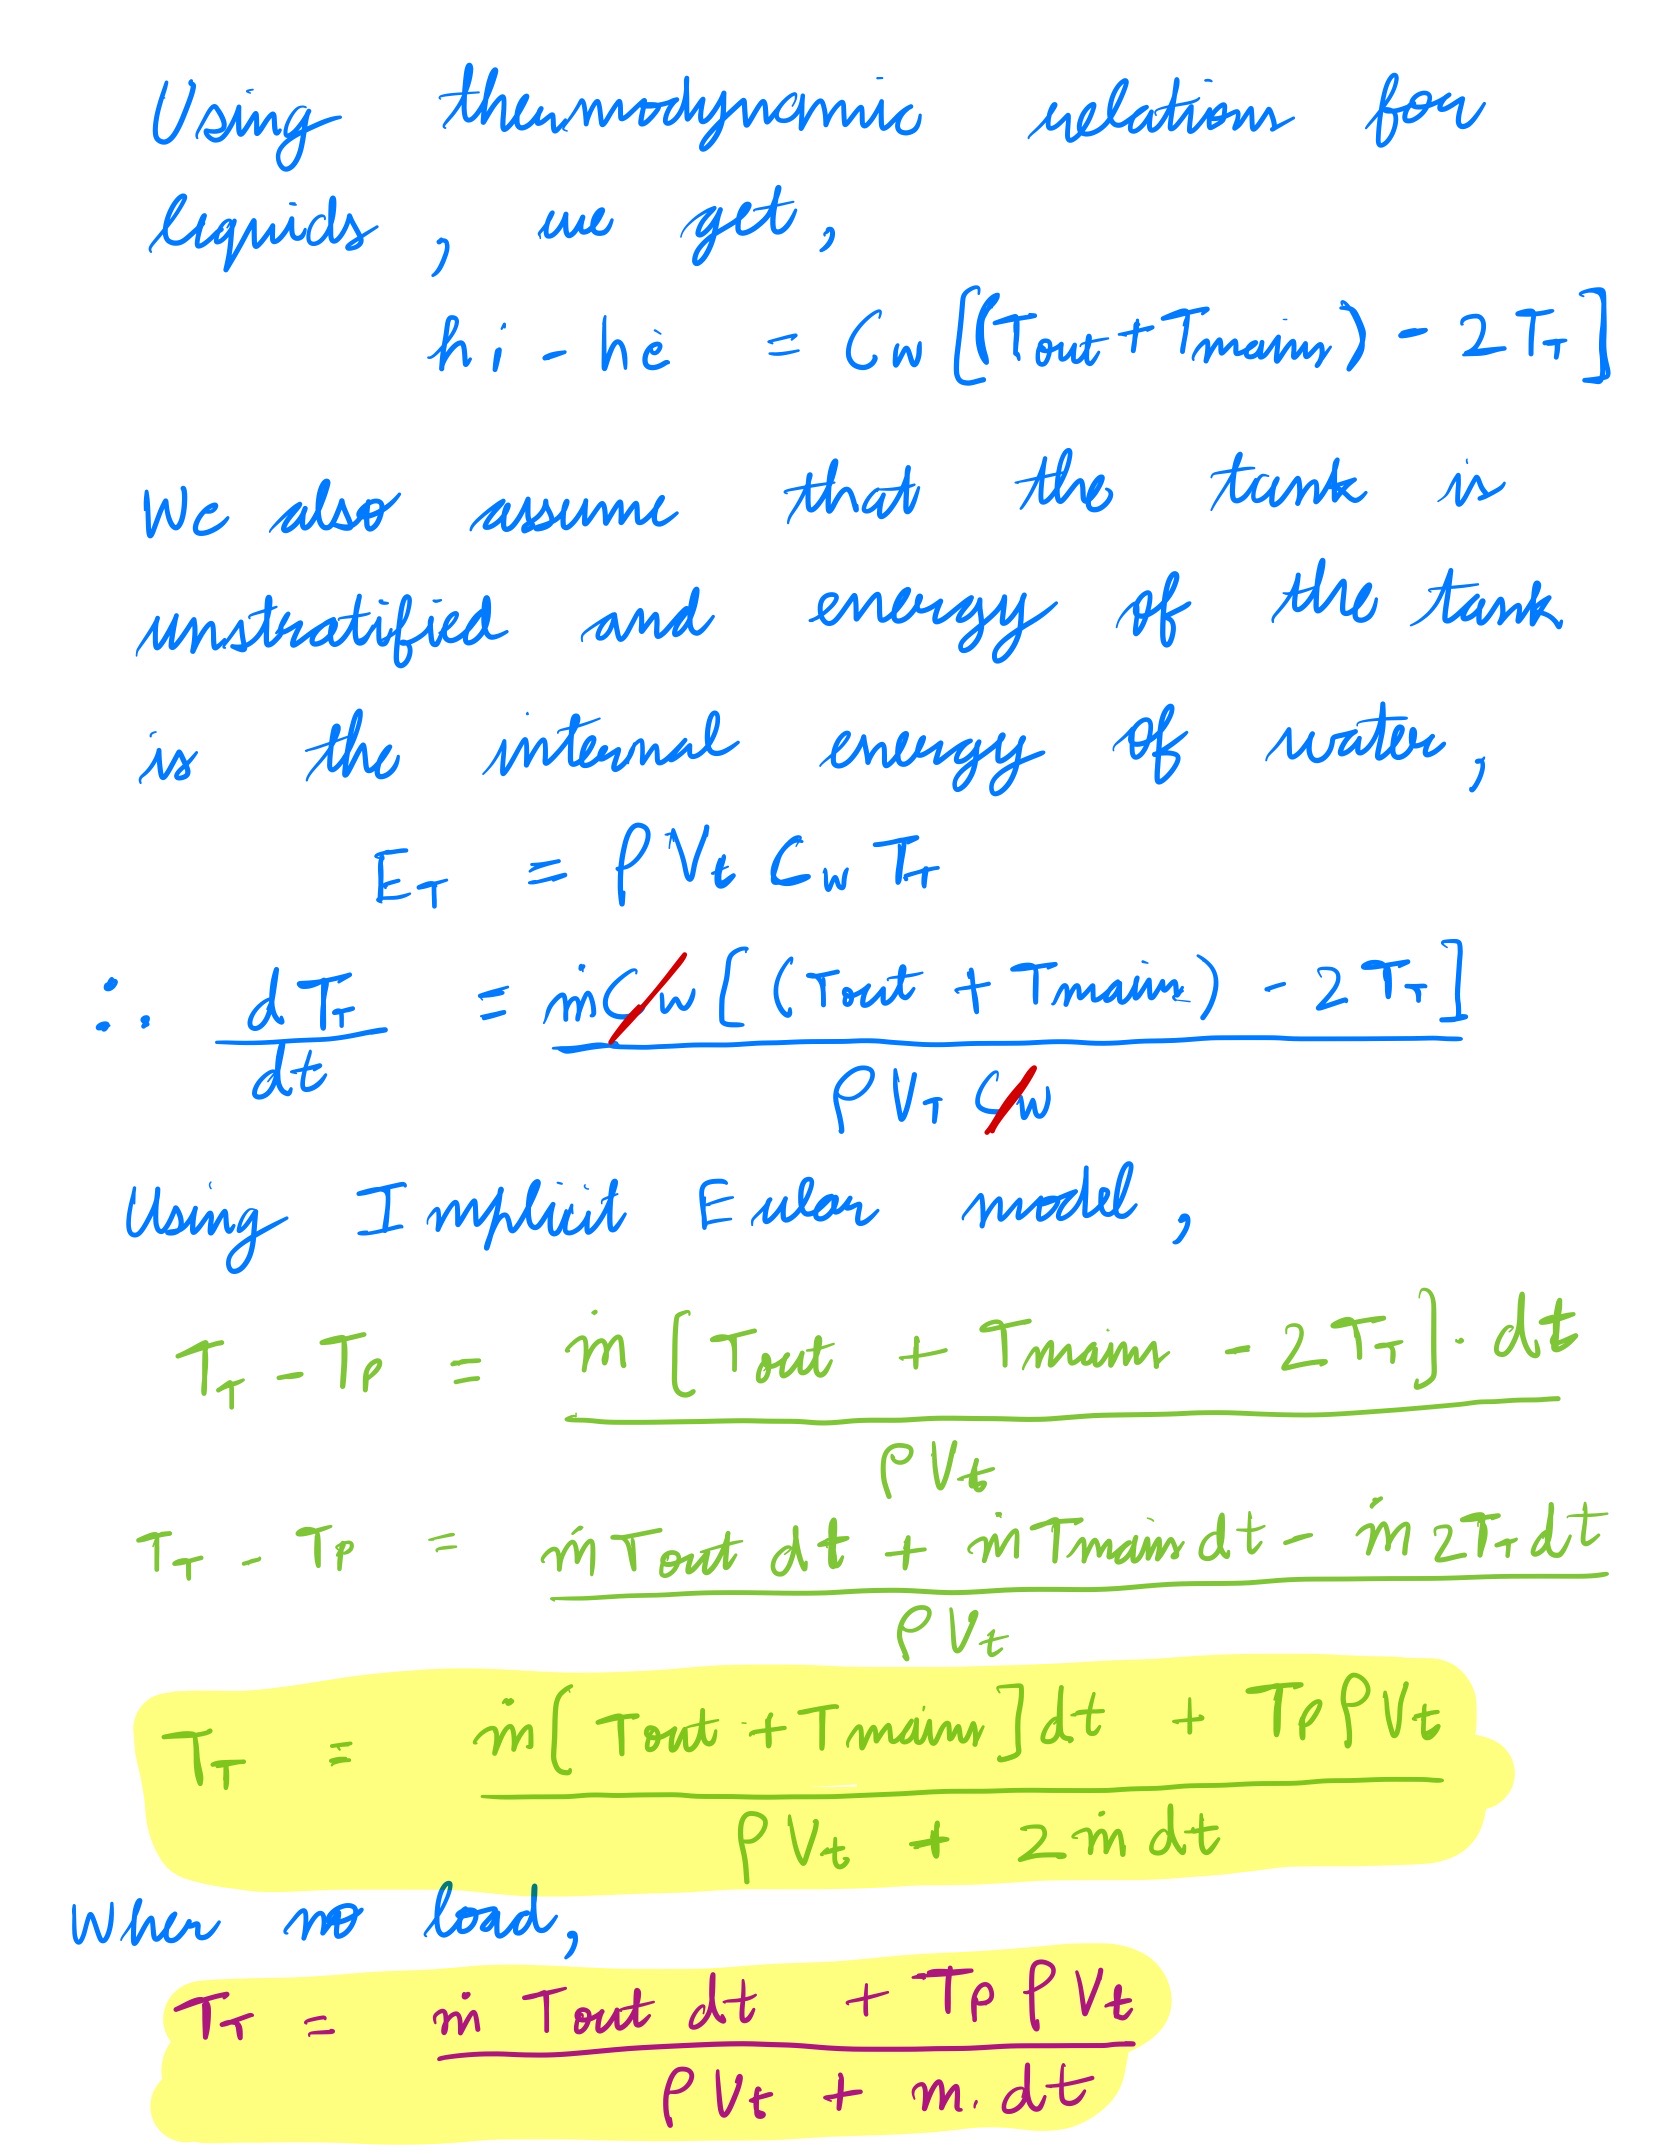 Using thermodynamic relations for
liquids, we get,
hi - he = Cw [(Tout + Tmains) - 2TT]
We also assume that the tank is
unstratified and energy of the tank
is the internal energy of water,
ET = ρVt Cw TT
∴ dTT/dt = ṁCw [(Tout + Tmains) - 2TT] / ρVT Cw
Using Implicit Eular model,
TT - Tp = ṁ [Tout + Tmains - 2TT] . dt / ρVt
TT - Tp = ṁTout dt + ṁTmains dt - ṁ2TTdt / ρVt
TT = ṁ[Tout + Tmains]dt + TpρVt / ρVt + 2ṁdt
When no load,
TT = ṁ Tout dt + TpρVt / ρVt + m. dt